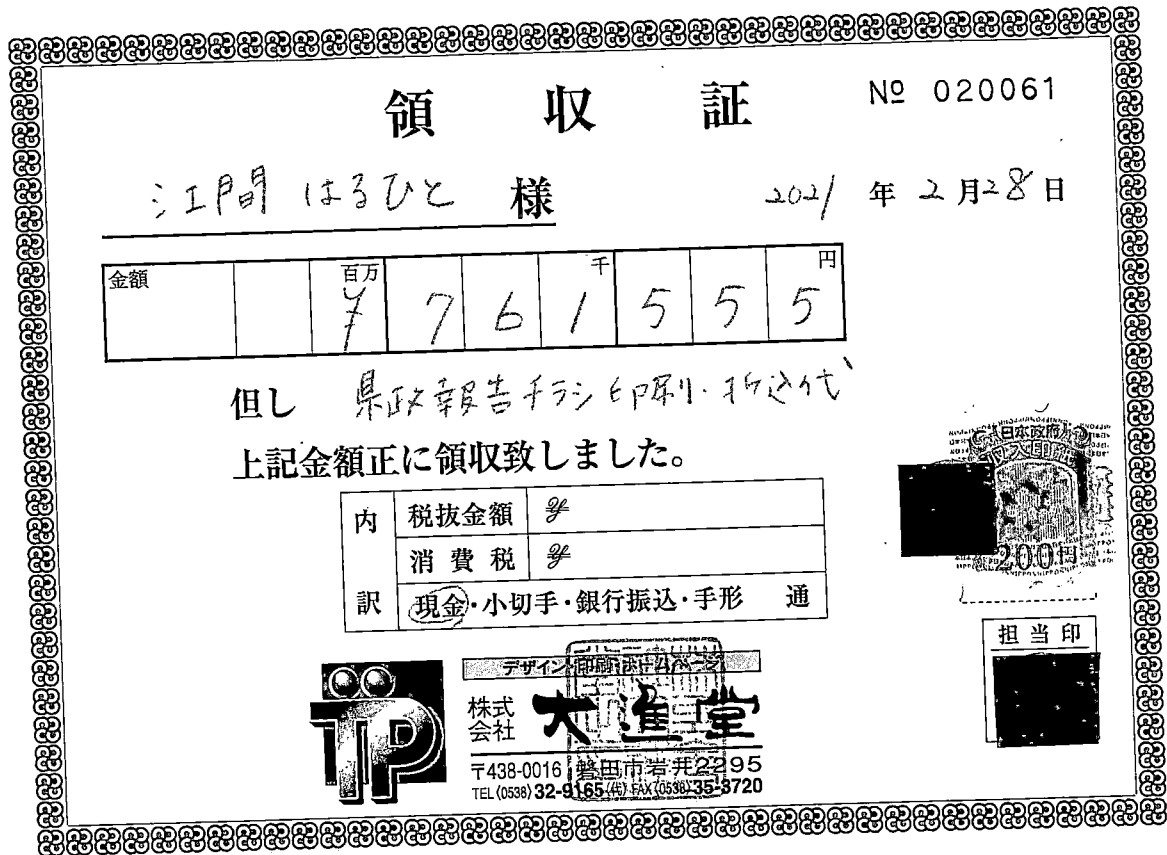 領収証 № 020061
江間 はるひと 様 2021 年 2 月 28 日
金額 百万 千 円
¥ 7 6 1 5 5 5
但し 県政報告チラシ印刷・折込代
上記金額正に領収致しました。
内訳
税抜金額 ¥
消費税 ¥
現金・小切手・銀行振込・手形 通
日本政府
収入印紙
200円
担当印
TP
デザイン・印刷・ホームページ
株式会社 大進堂
〒438-0016 磐田市岩井2295
TEL(0538)32-9165(代) FAX(0538)35-3720